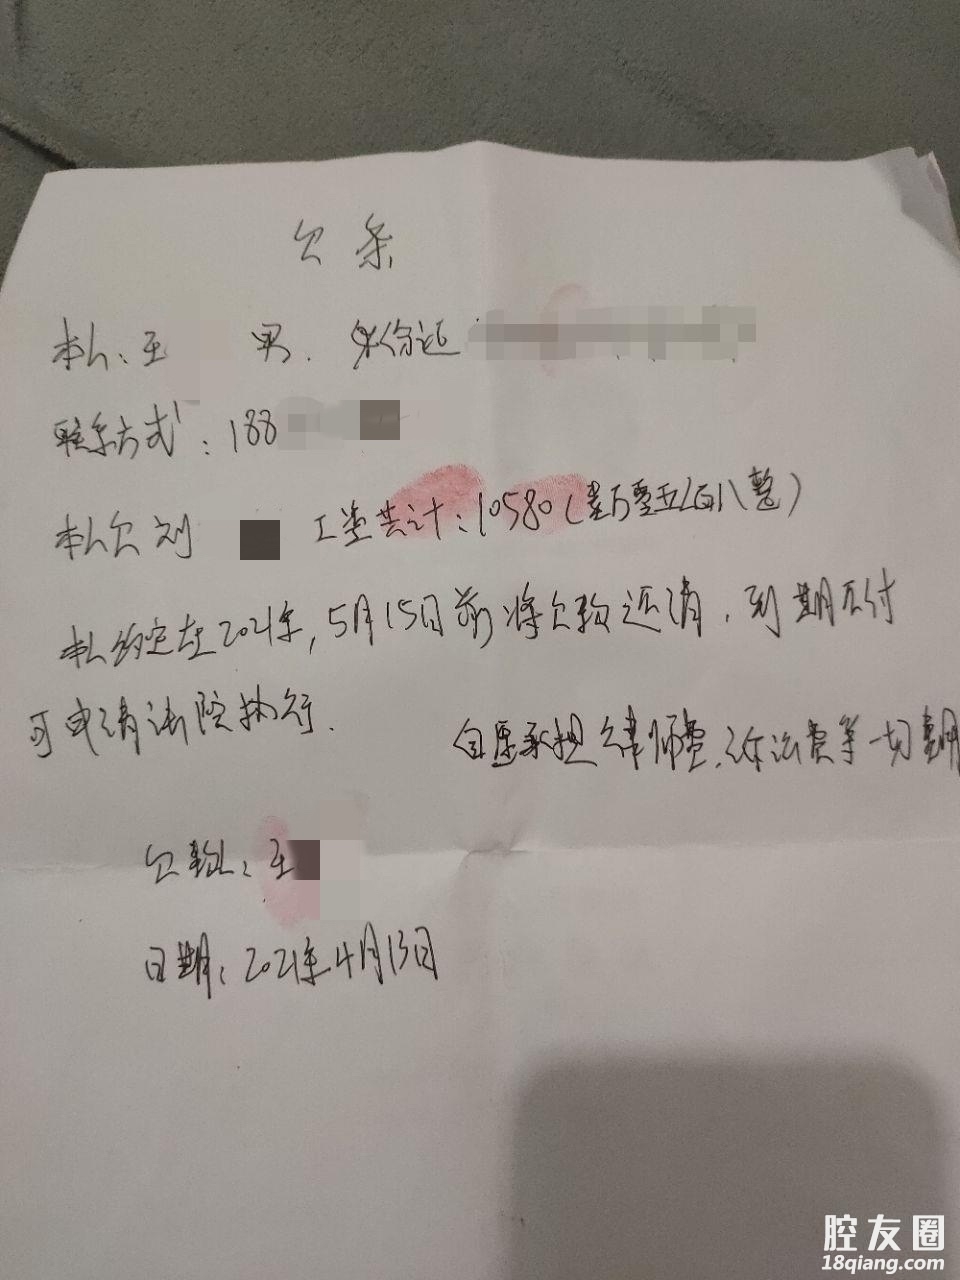 欠条
本人：王 男. 身份证
联系方式：188
本人欠刘 工资共计：10580（壹万零五佰八整）
本人约定在2021年，5月15日前将欠款还清，到期不付
可申请法院执行.
自愿承担律师费.诉讼费等一切费用
欠款人：王
日期：2021年4月13日
腔友圈
18qiang.com